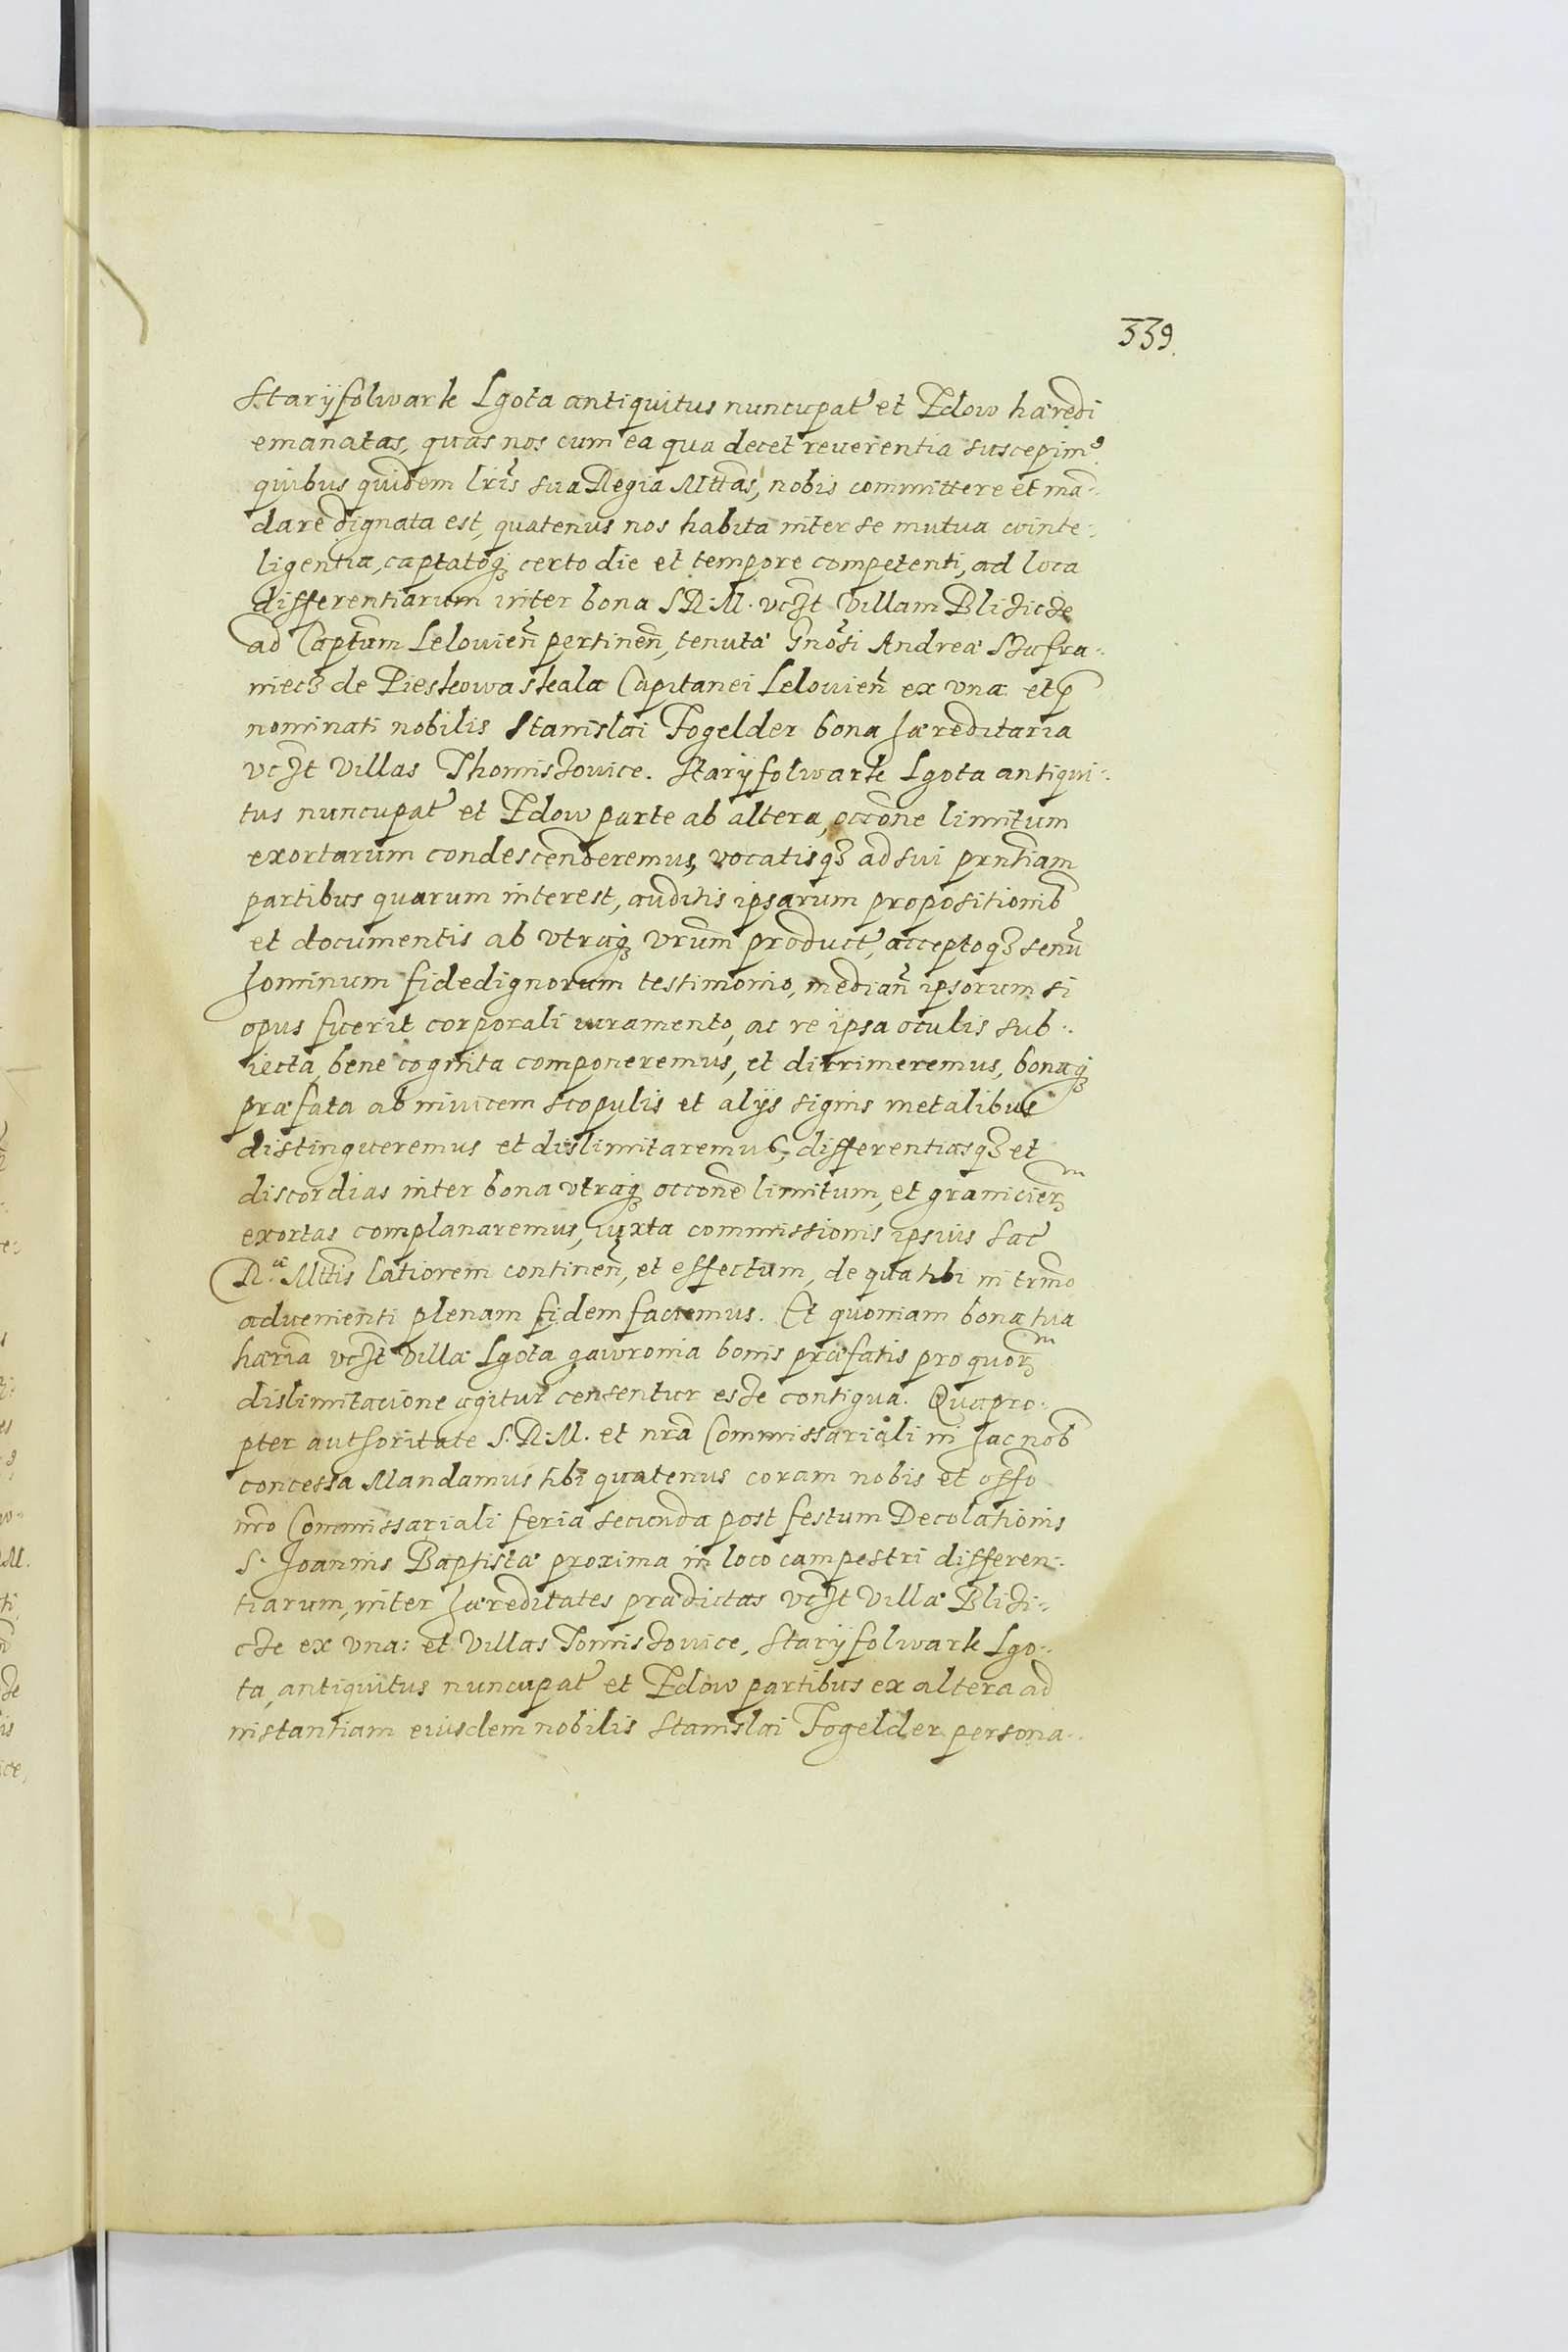 339.
Staryfolwark Lgota antiquitus nuncupat et Zdow hæredi
emanatas, quas nos cum ea qua decet reuerentia suscepim9
quibus quidem lris sua Regia Mttas, nobis committere et mā-
dare dignata est, quatenus nos habita inter se mutua cointe-
ligentia, captatoq3 certo die et tempore competenti, ad loca
differentiarum inter bona S.R.M. vczt Villam Blizicze
ad Captum Lelouien pertinen, tenutæ Gnosi Andreæ Szafra-
niecz de Pieskowaskala Capitanei Lelouien ex vna et p
nominati nobilis Stanislai Fogelder bona hæreditaria
vczt villas Thomiszouice. Staryfolwark Lgota antiqui-
tus nuncupat et Zdow parte ab altera, occone limitum
exortarum condescenderemus, vocatisq3 ad sui prntiam
partibus quarum interest, auditis ipsarum propositionib
et documentis ab vtraq3 vrum product, acceptoq3 senū
hominum fidedignorum testimonio, median ipsorum si
opus fuerit corporali iuramento, ac re ipsa oculis sub-
iecta, bene cognita componeremus, et dirrimeremus, bonaq3
præfata ab inuicem scopulis et alijs signis metalibus
distingueremus et dislimitaremus, differentiasq3 et
discordias inter bona vtraq3 occone limitum, et granicierm
exortas complanaremus, iuxta commissionis ipsius Sac
R.æ Mttis latiorem continen, et effectum, de qua tibi in trmo
aduenienti plenam fidem faciemus. Et quoniam bona tua
hæria vczt villæ Lgota gawronia bonis præfatis pro quorm
dislimitacione agitur censentur esse contigua. Quapro-
pter authoritate S.R.M. et nra Commissariali in hac nob
concessa Mandamus tibi quatenus coram nobis et offo
nro Commissariali feria secunda post festum Decolationis
S. Joannis Baptistæ proxima in loco campestri differen-
tiarum, inter hæreditates prædictas vczt villæ Blizi-
cze ex vna: et Villas Tomiszouice, Staryfolwark Lgo-
ta, antiquitus nuncupat et Zdow partibus ex altera ad
instantiam eiusdem nobilis Stanislai Fogelder persona-